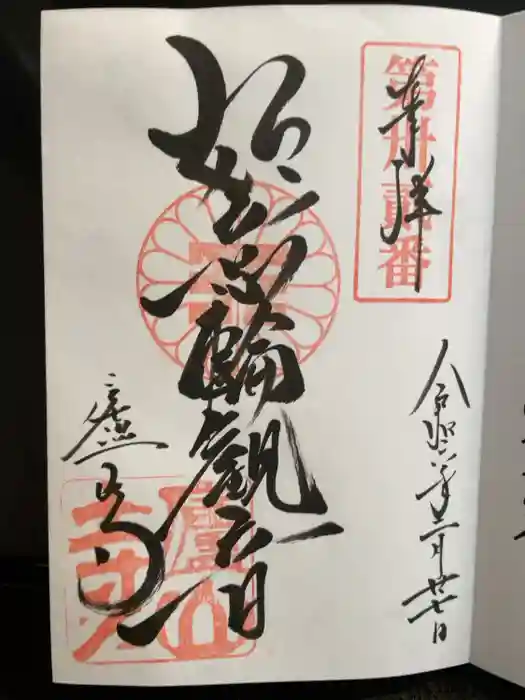 第卅貳番
奉拝
令和六年二月廿七日
如意輪観音
廬山寺
廬山寺